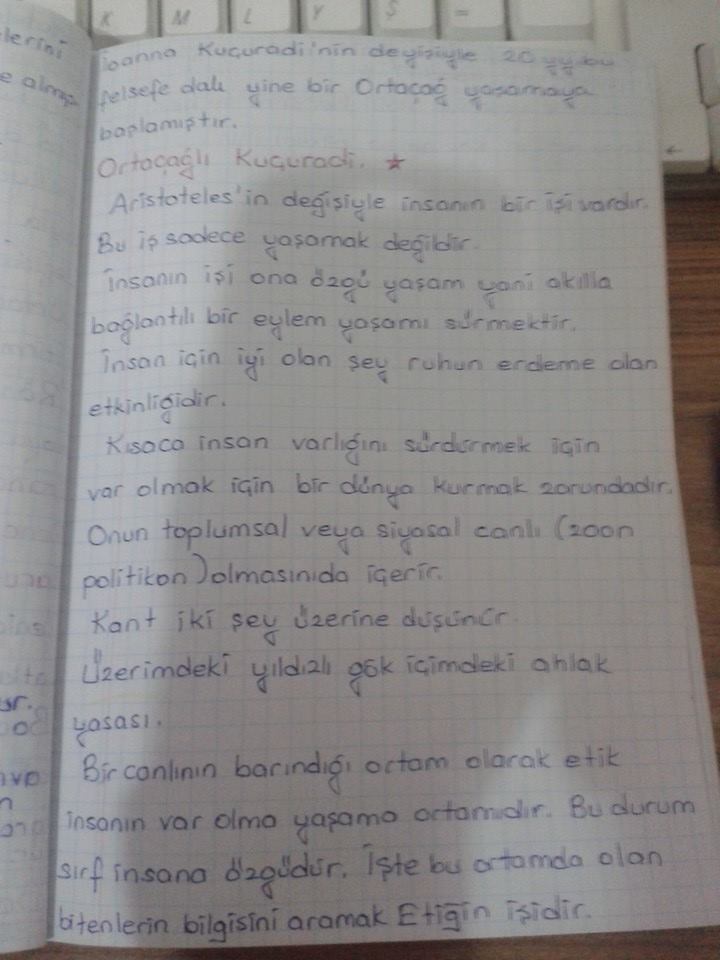 K M L Y Ş =
lerini
e alma
İoanna Kuçuradi'nin değişiyle 20 yy bu
felsefe dalı yine bir Ortaçağ yaşamaya
başlamıştır.
Ortaçağlı Kuçuradi. ★
Aristoteles'in değişiyle insanın bir işi vardır.
Bu iş sadece yaşamak değildir.
İnsanın işi ona özgü yaşam yani akılla
bağlantılı bir eylem yaşamı sürmektir.
İnsan için iyi olan şey ruhun erdeme olan
etkinliğidir.
Kısaca insan varlığını sürdürmek için
var olmak için bir dünya kurmak zorundadır.
Onun toplumsal veya siyasal canlı (zoon
politikon) olmasınıda içerir.
Kant iki şey üzerine düşünür.
Üzerimdeki yıldızlı gök içimdeki ahlak
yasası.
Bir canlının barındığı ortam olarak etik
insanın var olma yaşama ortamıdır. Bu durum
sırf insana özgüdür. İşte bu ortamda olan
bitenlerin bilgisini aramak Etiğin işidir.